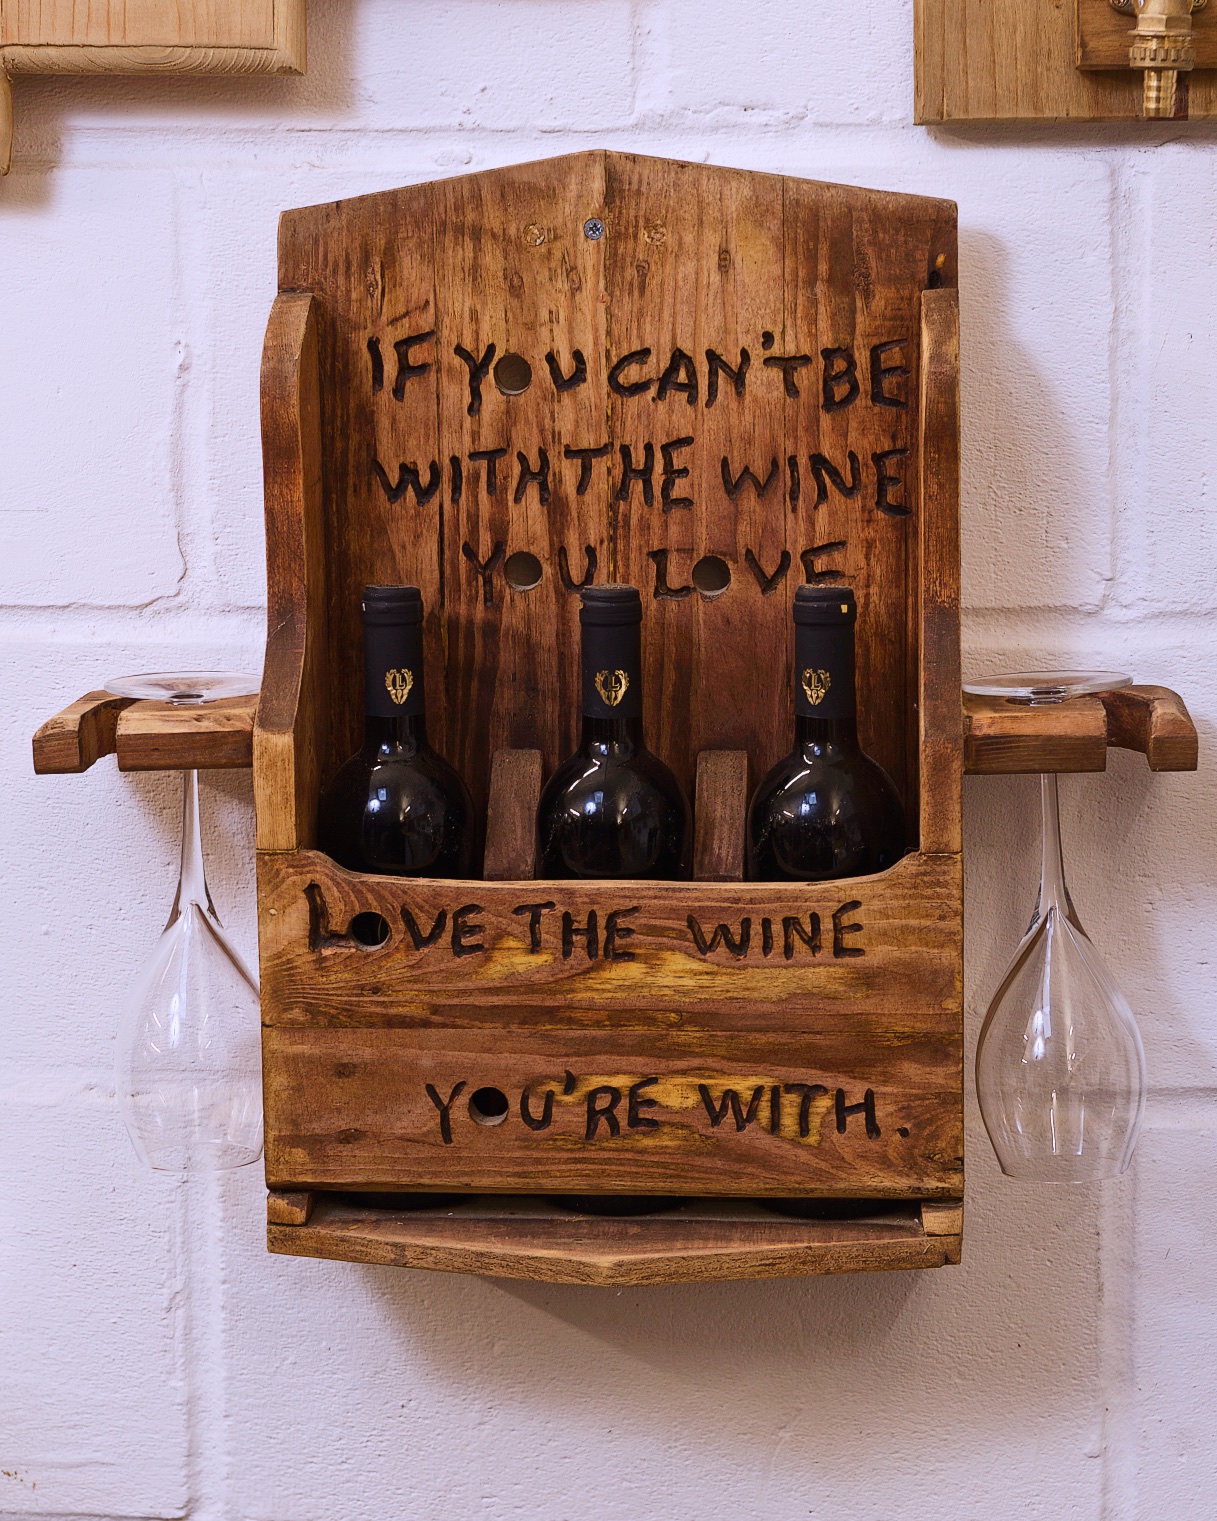 IF YOU CAN'T BE
WITH THE WINE
YOU LOVE
LOVE THE WINE
YOU'RE WITH.